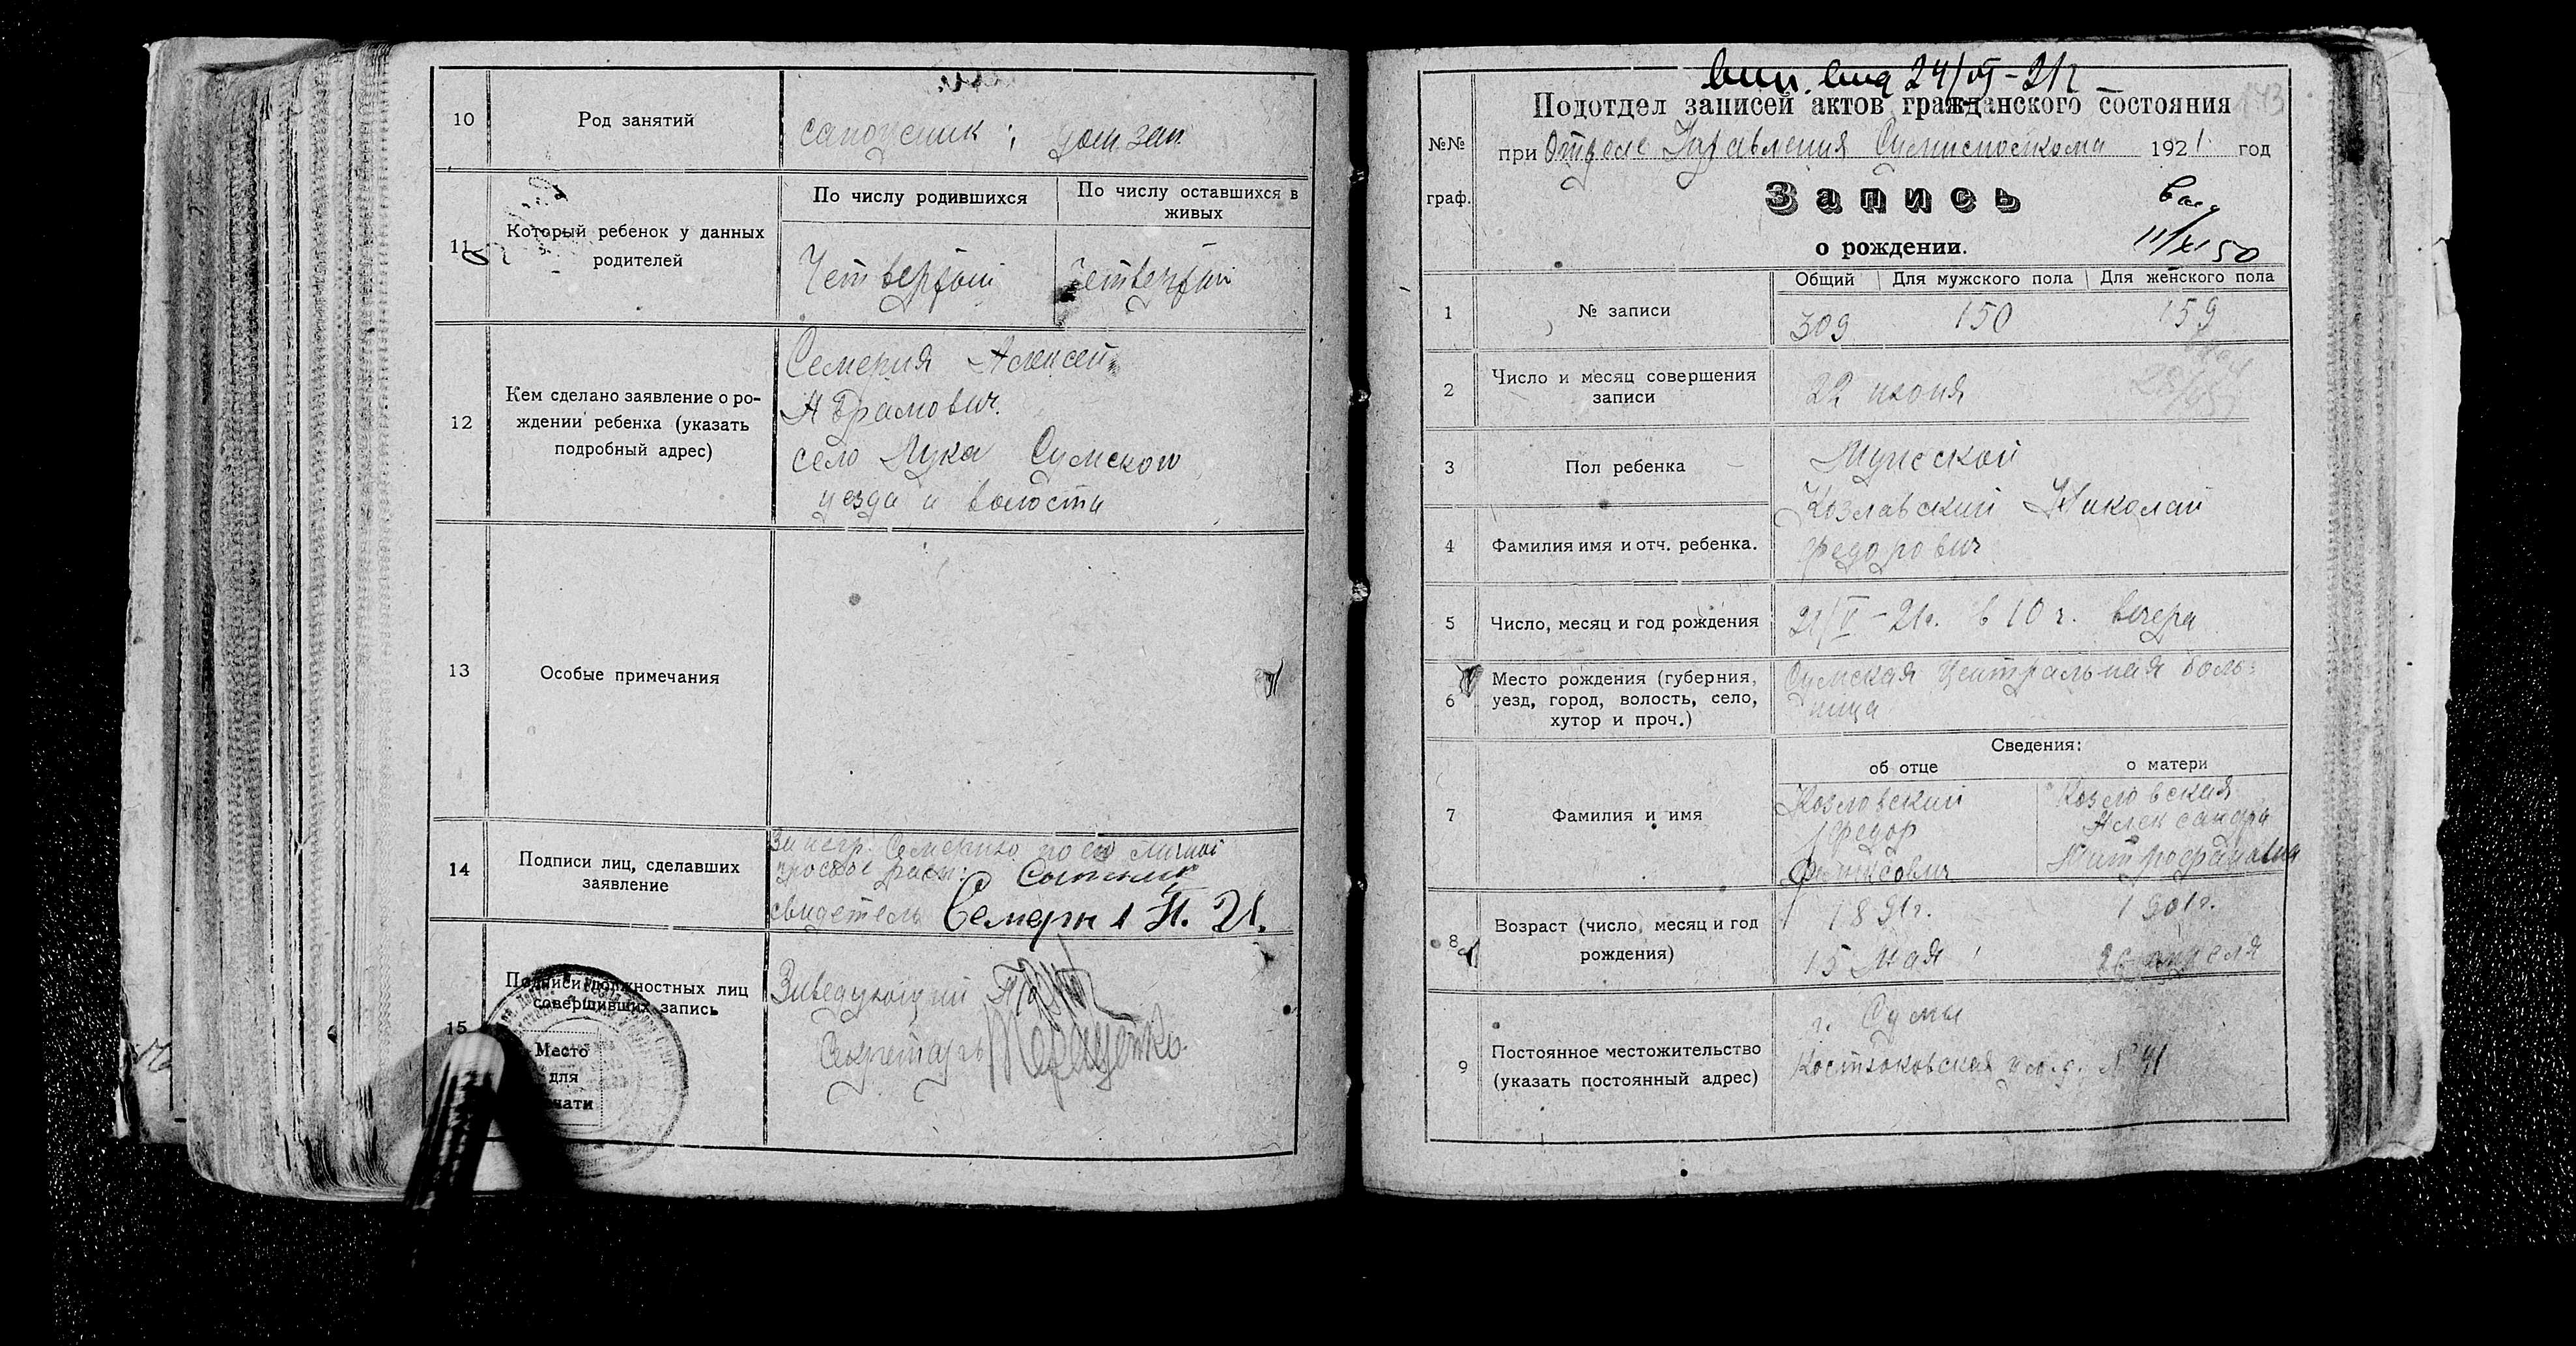 10
Род занятий
сапожник; дом. зан.
11
Который ребенок у данных
родителей
По числу родившихся
По числу оставшихся в
живых
Четвертый
Четвертый
12
Кем сделано заявление о ро-
ждении ребенка (указать
подробный адрес)
Семерня Алексей
Абрамович.
село Лука Сумского
уезда и волости
13
Особые примечания
14
Подписи лиц, сделавших
заявление
За негр. Семерню по его личной
просьбе расп.
свидетель
15
Подписи должностных лиц
совершивших запись
Место
для
печати
Заведующий
Секретарь
24/VI-21г
Подотдел записей актов гражданского состояния
№№
граф.
при Отделе Управления 1921 год
Запись
о рождении.
11/XI 50
Общий
Для мужского пола
Для женского пола
1
№ записи
309
150
159
2
Число и месяц совершения
записи
22 июня
3
Пол ребенка
Мужской
4
Фамилия имя и отч. ребенка.
Козлавский Николай
Федорович
5
Число, месяц и год рождения
21/V-21г. в 10 ч. вечера
6
Место рождения (губерния,
уезд, город, волость, село,
хутор и проч.)
Сумская Центральная боль=
ница
Сведения:
об отце
о матери
7
Фамилия и имя
Козловский
Федор
Козловская
Александра
Митрофановна
8
Возраст (число, месяц и год
рождения)
1891г.
15 мая
1901г.
26 апреля
9
Постоянное местожительство
(указать постоянный адрес)
г. Сумы
Костюковская ул. д. № 41